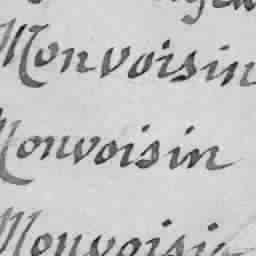 Monvoisin
Monvoisin
Monvoisin